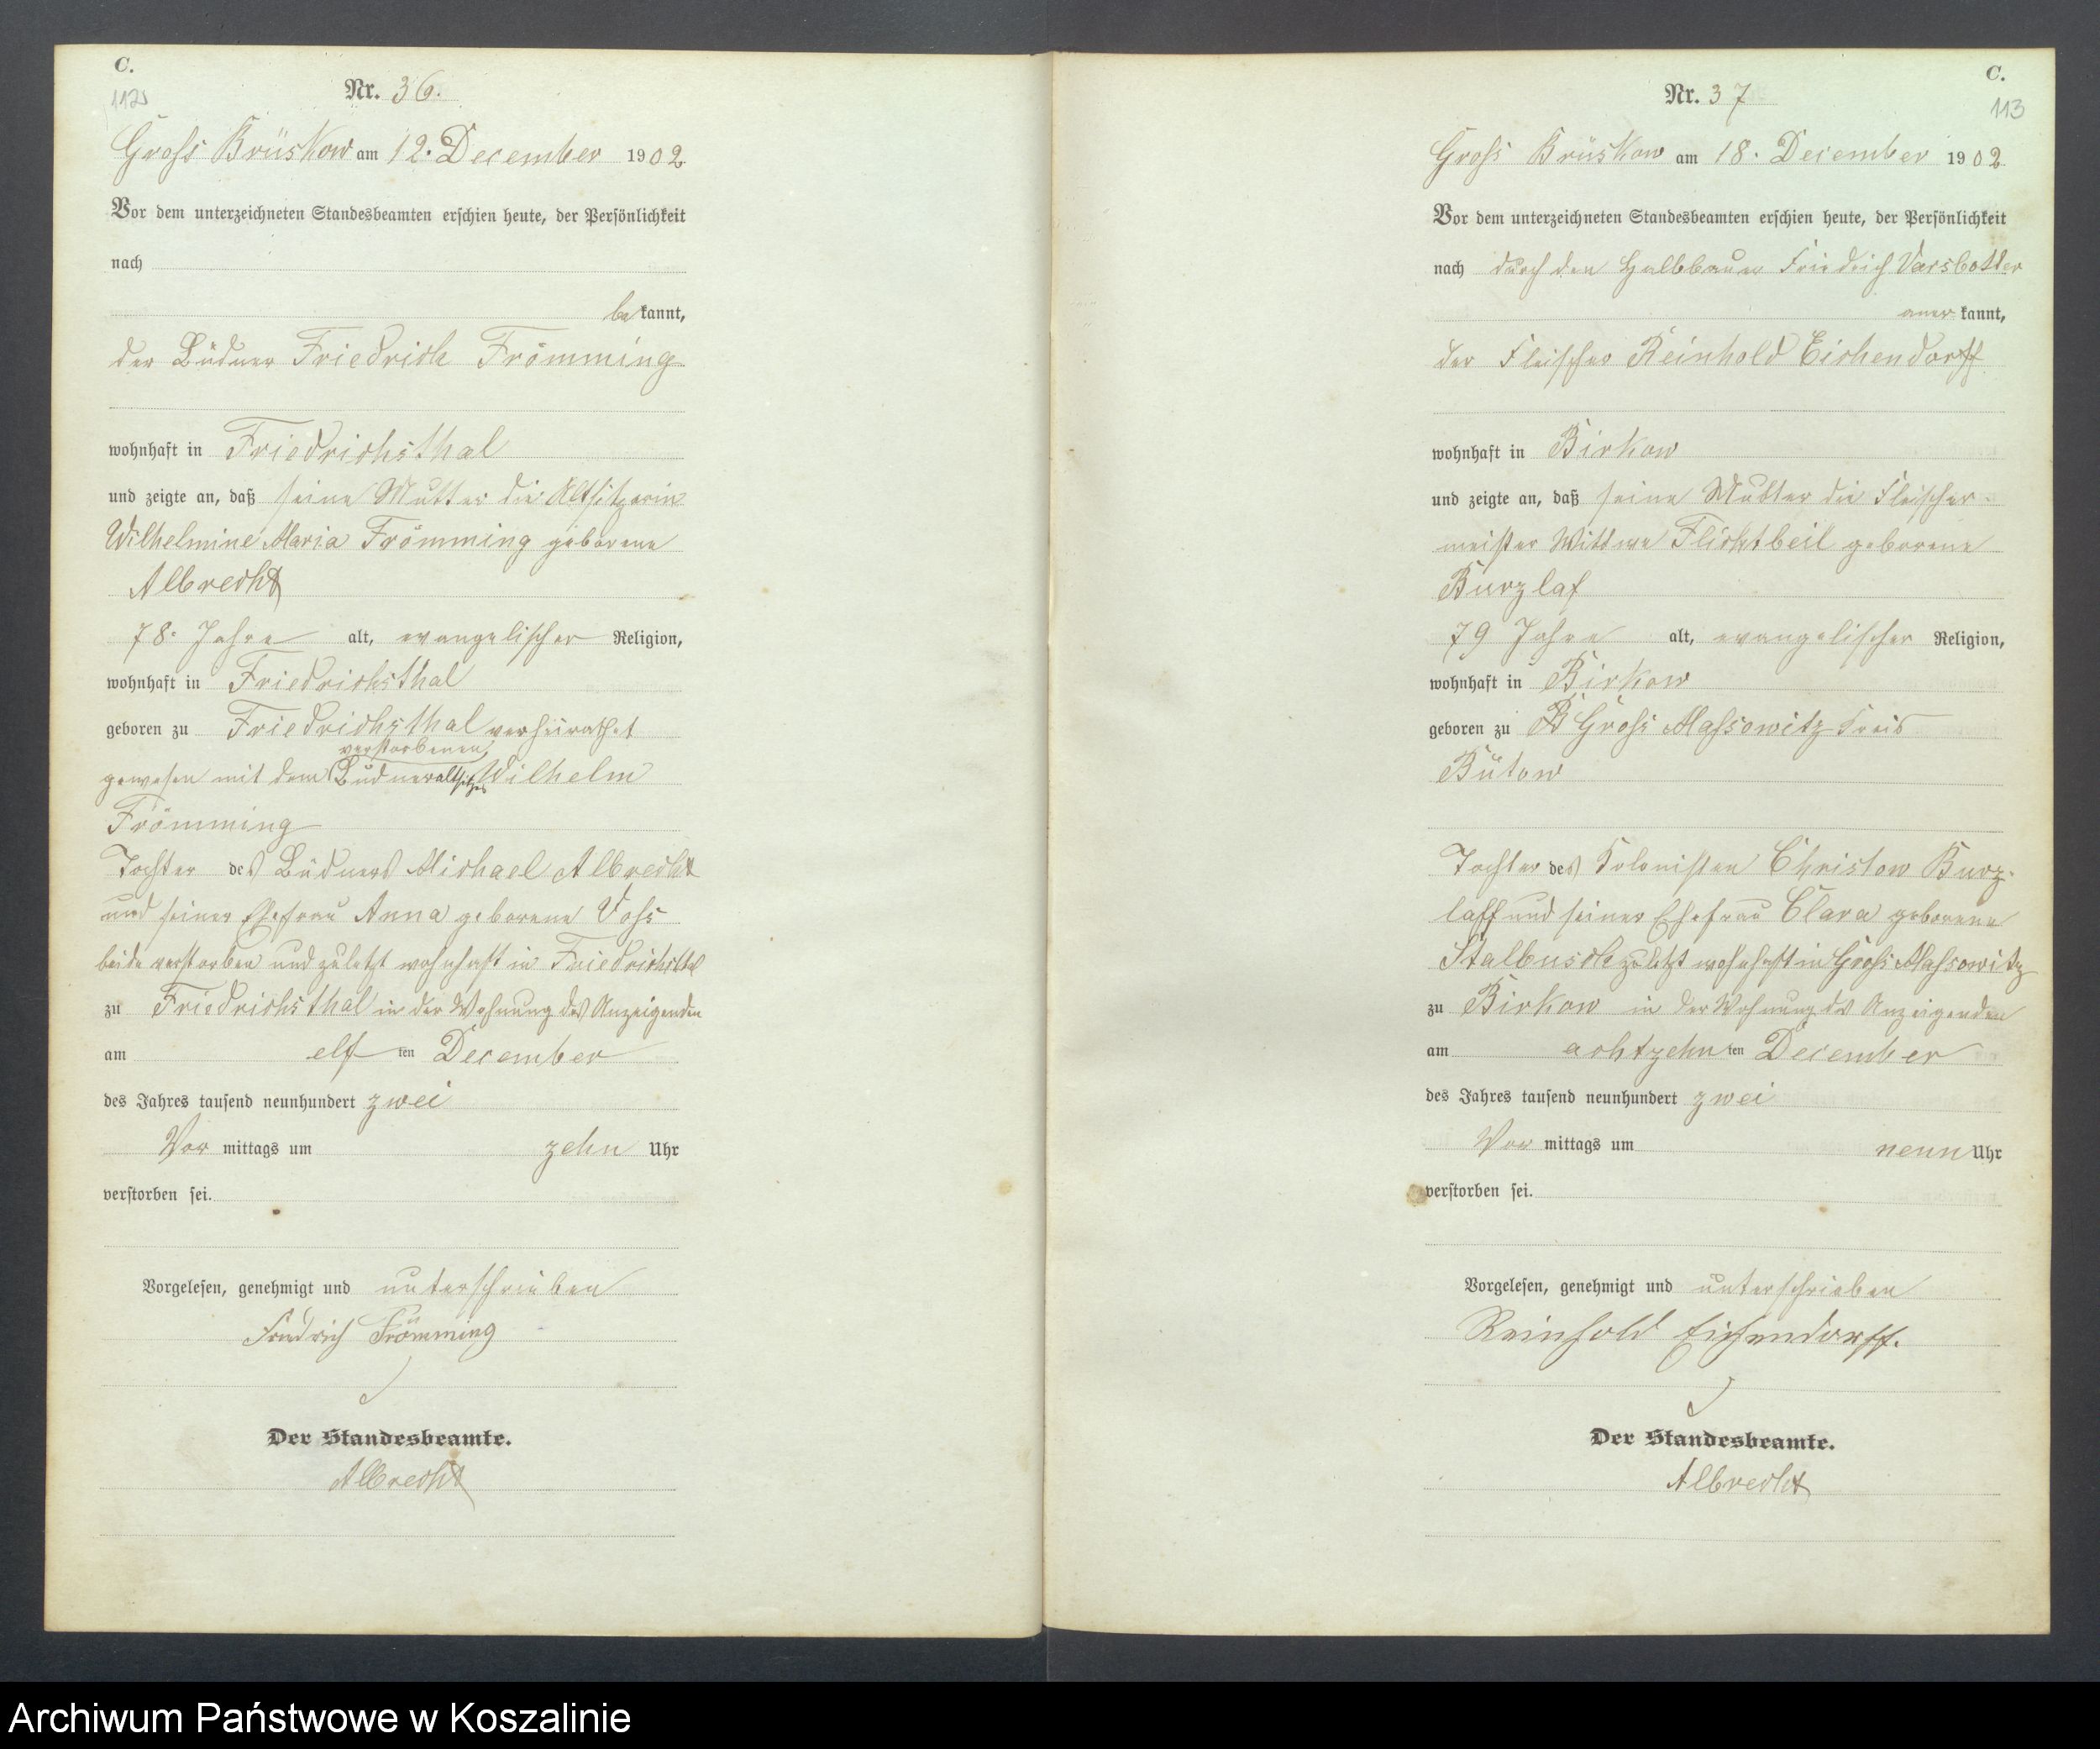 C.
112v
Nr. 36.
Gross Brüskow am 12. December 1902
Vor dem unterzeichneten Standesbeamten erschien heute, der Persönlichkeit
nach
be kannt,
der Büdner Friedrich Frömming
wohnhaft in Friedrichsthal
und zeigte an, daß seine Mutter die Altsitzerin
Wilhelmine Maria Frömming geborene
Albrecht
78 Jahre alt, evangelischer Religion,
wohnhaft in Friedrichsthal
geboren zu Friedrichsthal verheirathet
verstorbenen
gewesen mit dem Büdneraltsitzer Wilhelm
Frömming
Tochter des Büdners Michael Albrecht
und seiner Ehefrau Anna geborene Voss
beide verstorben und zuletzt wohnhaft in Friedrichsthal
zu Friedrichsthal in der Wohnung des Anzeigenden
am elf ten December
des Jahres tausend neunhundert zwei
Vor mittags um zehn Uhr
verstorben sei.
Vorgelesen, genehmigt und unterschrieben
Friedrich Frömming
Der Standesbeamte.
Albrecht
C.
113
Nr. 37
Gross Brüskow am 18. December 1902
Vor dem unterzeichneten Standesbeamten erschien heute, der Persönlichkeit
nach durch den Halbbauer Friedrich
aner kannt,
der Fleischer Reinhold Eichendorff
wohnhaft in Birkow
und zeigte an, daß seine Mutter die Fleischer-
meister Wittwe geborene
Burzlaf
79 Jahre alt, evangelischer Religion,
wohnhaft in Birkow
geboren zu B Gross Massowitz Kreis
Bütow
Tochter des Kolonisten Christow Burz-
laff und seiner Ehefrau Clara geborene
Stalbusch zuletzt wohnhaft in Gross Massowitz
zu Birkow in der Wohnung des Anzeigenden
am achtzehn ten December
des Jahres tausend neunhundert zwei
Vor mittags um neun Uhr
verstorben sei.
Vorgelesen, genehmigt und unterschrieben
Reinhold Eichendorff.
Der Standesbeamte.
Albrecht
Archiwum Państwowe w Koszalinie